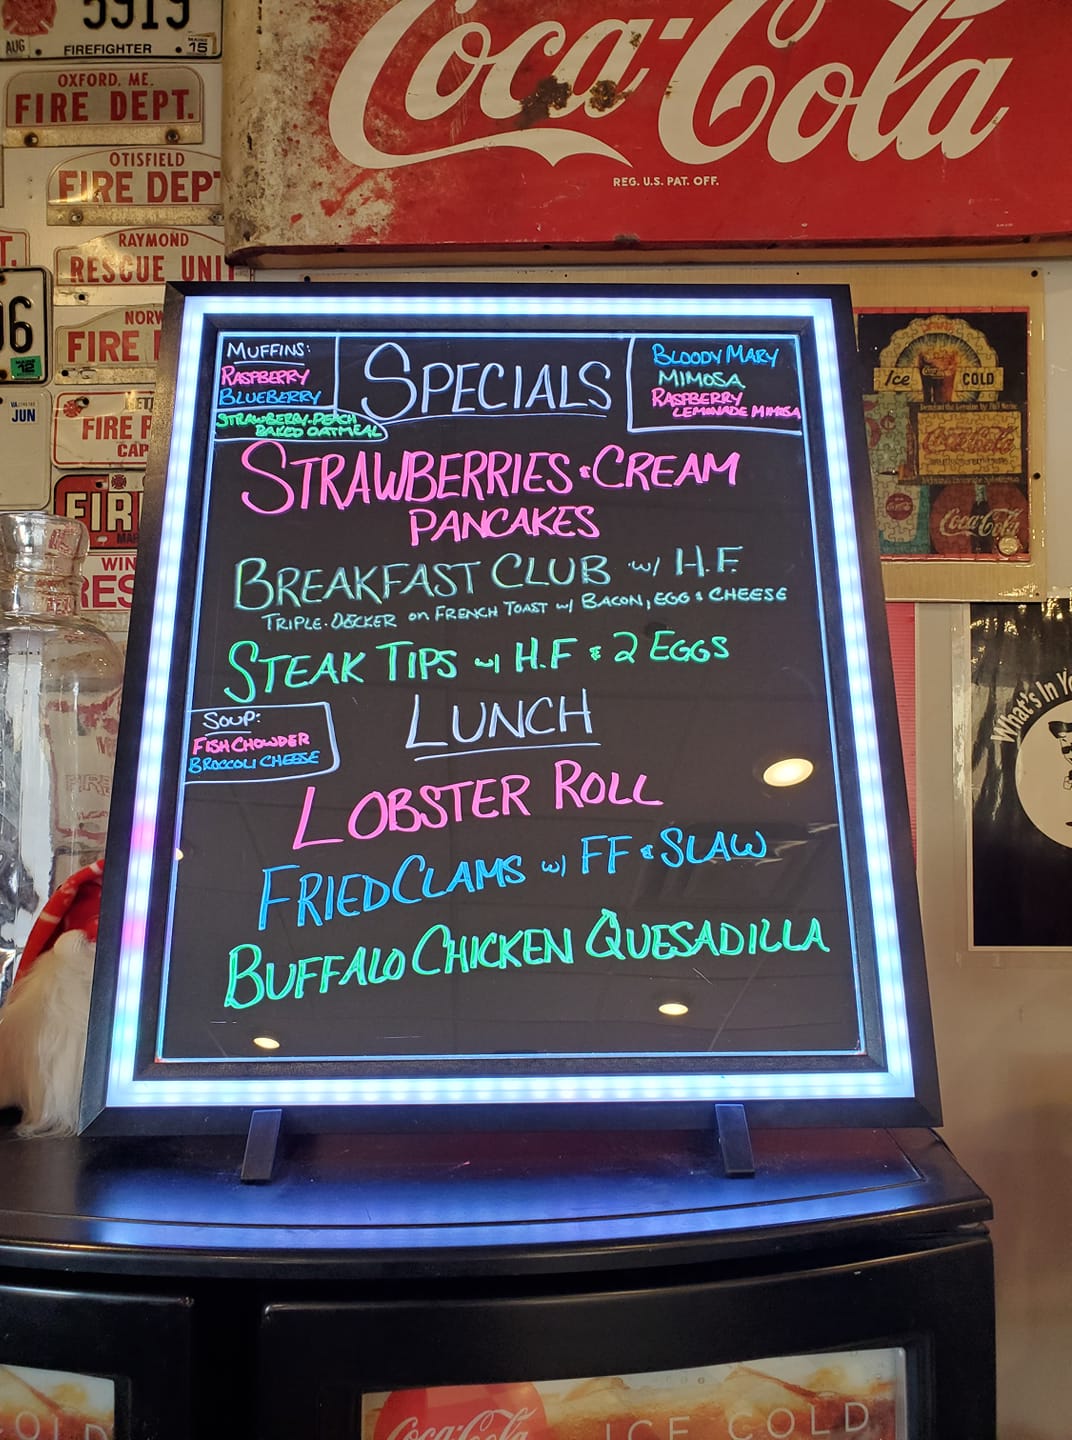 5919
AUG
FIREFIGHTER
15
OXFORD, ME.
FIRE DEPT.
OTISFIELD
FIRE DEPT
RAYMOND
RESCUE UNIT
T.
NORW
FIRE
06
12
JUN
FIRE
CAP
FIR
WIN
RES
Coca-Cola
REG. U.S. PAT. OFF.
Ice COLD
Coca-Cola
Coca-Cola
What's In Yo
MUFFINS:
RASPBERRY
BLUEBERRY
STRAWBERRY-PEACH
BAKED OATMEAL
SPECIALS
BLOODY MARY
MIMOSA
RASPBERRY
LEMONADE MIMOSA
STRAWBERRIES & CREAM
PANCAKES
BREAKFAST CLUB w/ H.F.
TRIPLE-DECKER on FRENCH TOAST w/ BACON, EGG & CHEESE
STEAK TIPS w/ H.F & 2 EGGS
LUNCH
SOUP:
FISH CHOWDER
BROCCOLI CHEESE
LOBSTER ROLL
FRIED CLAMS w/ FF & SLAW
BUFFALO CHICKEN QUESADILLA
OLD
Coca-Cola
ICE COLD